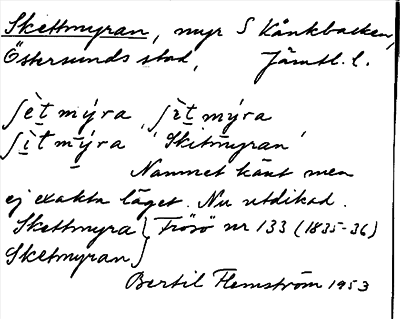 Skettmyran, myr S Kånkbacken,
Östersunds stad, Jämtl. l.
ʃètmýra, ʃìtmýra
ʃìtmýra 'Skitmyran'
Namnet känt men
ej exakta läget. Nu utdikad.
Skettmyra } Frösö nr 133 (1835-36)
Sketmyran
Bertil Flemström 1953